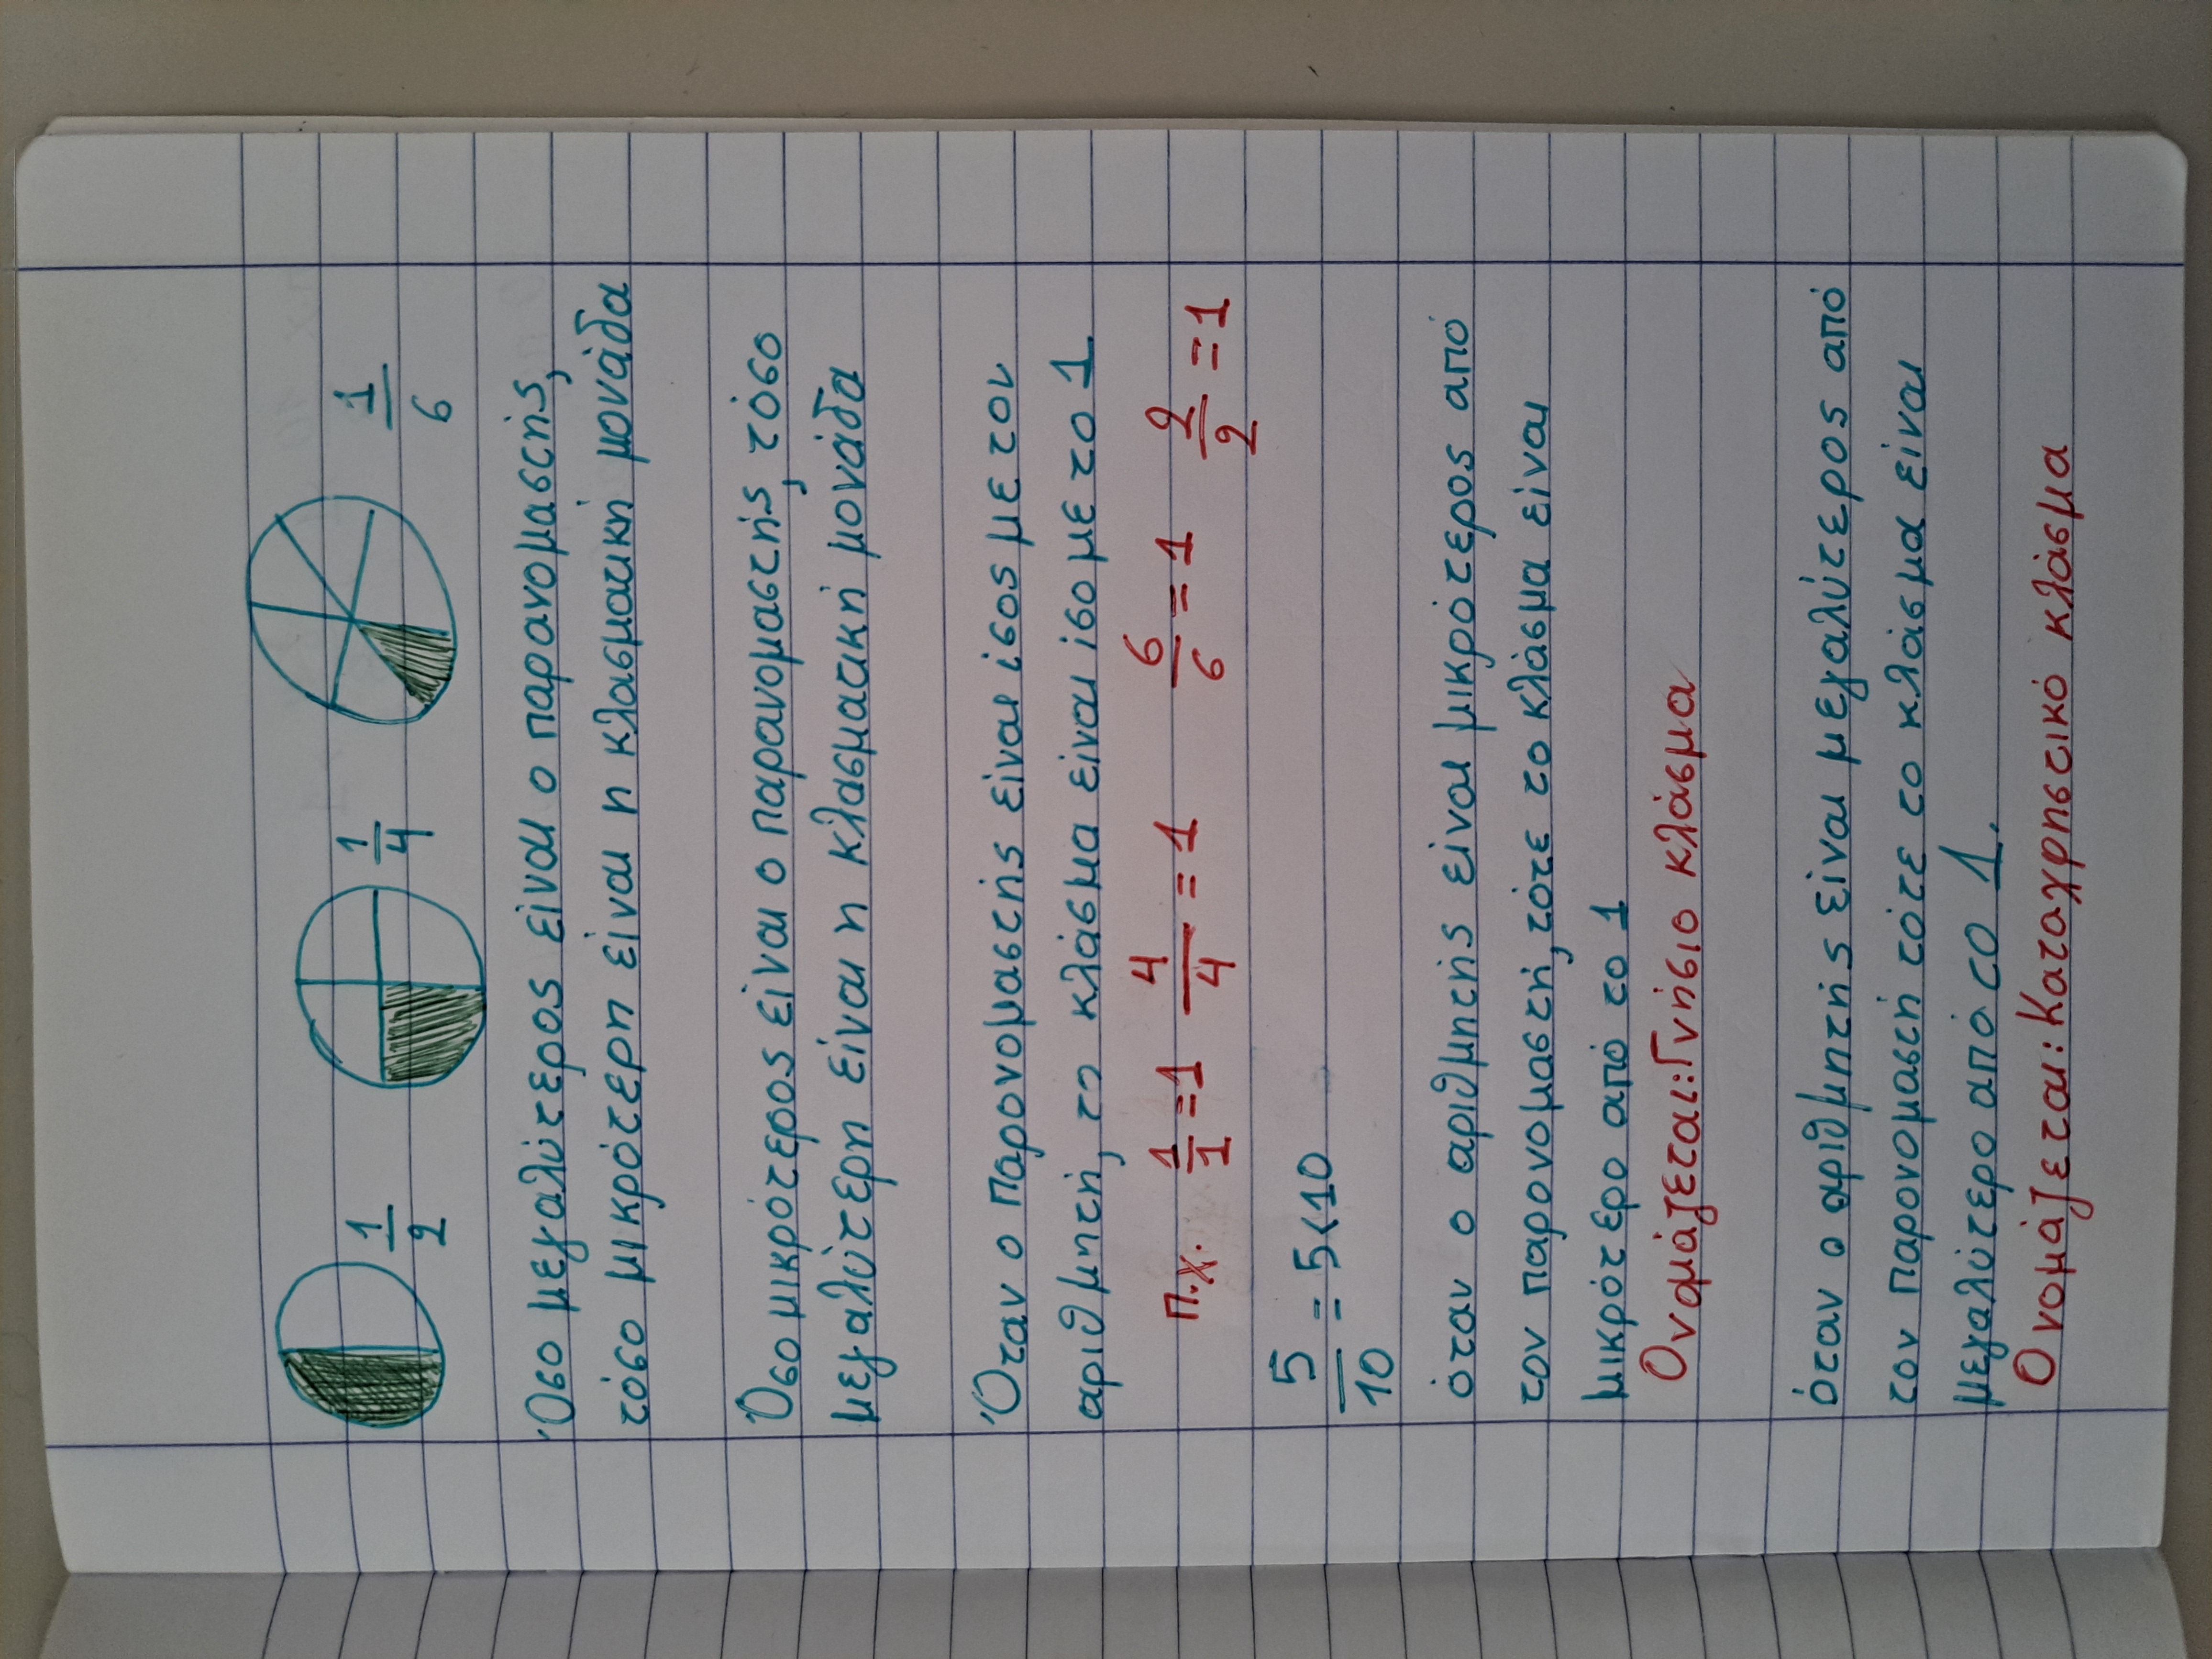 1/2 1/4 1/6
Όσο μεγαλύτερος είναι ο παρανομαστής,
τόσο μικρότερη είναι η κλασματική μονάδα
Όσο μικρότερος είναι ο παρανομαστής, τόσο
μεγαλύτερη είναι η κλασματική μονάδα
Όταν ο παρονομαστής είναι ίσος με τον
αριθμητή, το κλάσμα είναι ίσο με το 1
π.χ. 1/1 = 1 4/4 = 1 6/6 = 1 2/2 = 1
5/10 = 5<10
όταν ο αριθμητής είναι μικρότερος από
τον παρονομαστή, τότε το κλάσμα είναι
μικρότερο από το 1
Ονομάζεται: Γνήσιο κλάσμα
όταν ο αριθμητής είναι μεγαλύτερος από
τον παρονομαστή τότε το κλάσμα είναι
μεγαλύτερο από το 1.
Ονομάζεται: Καταχρηστικό κλάσμα